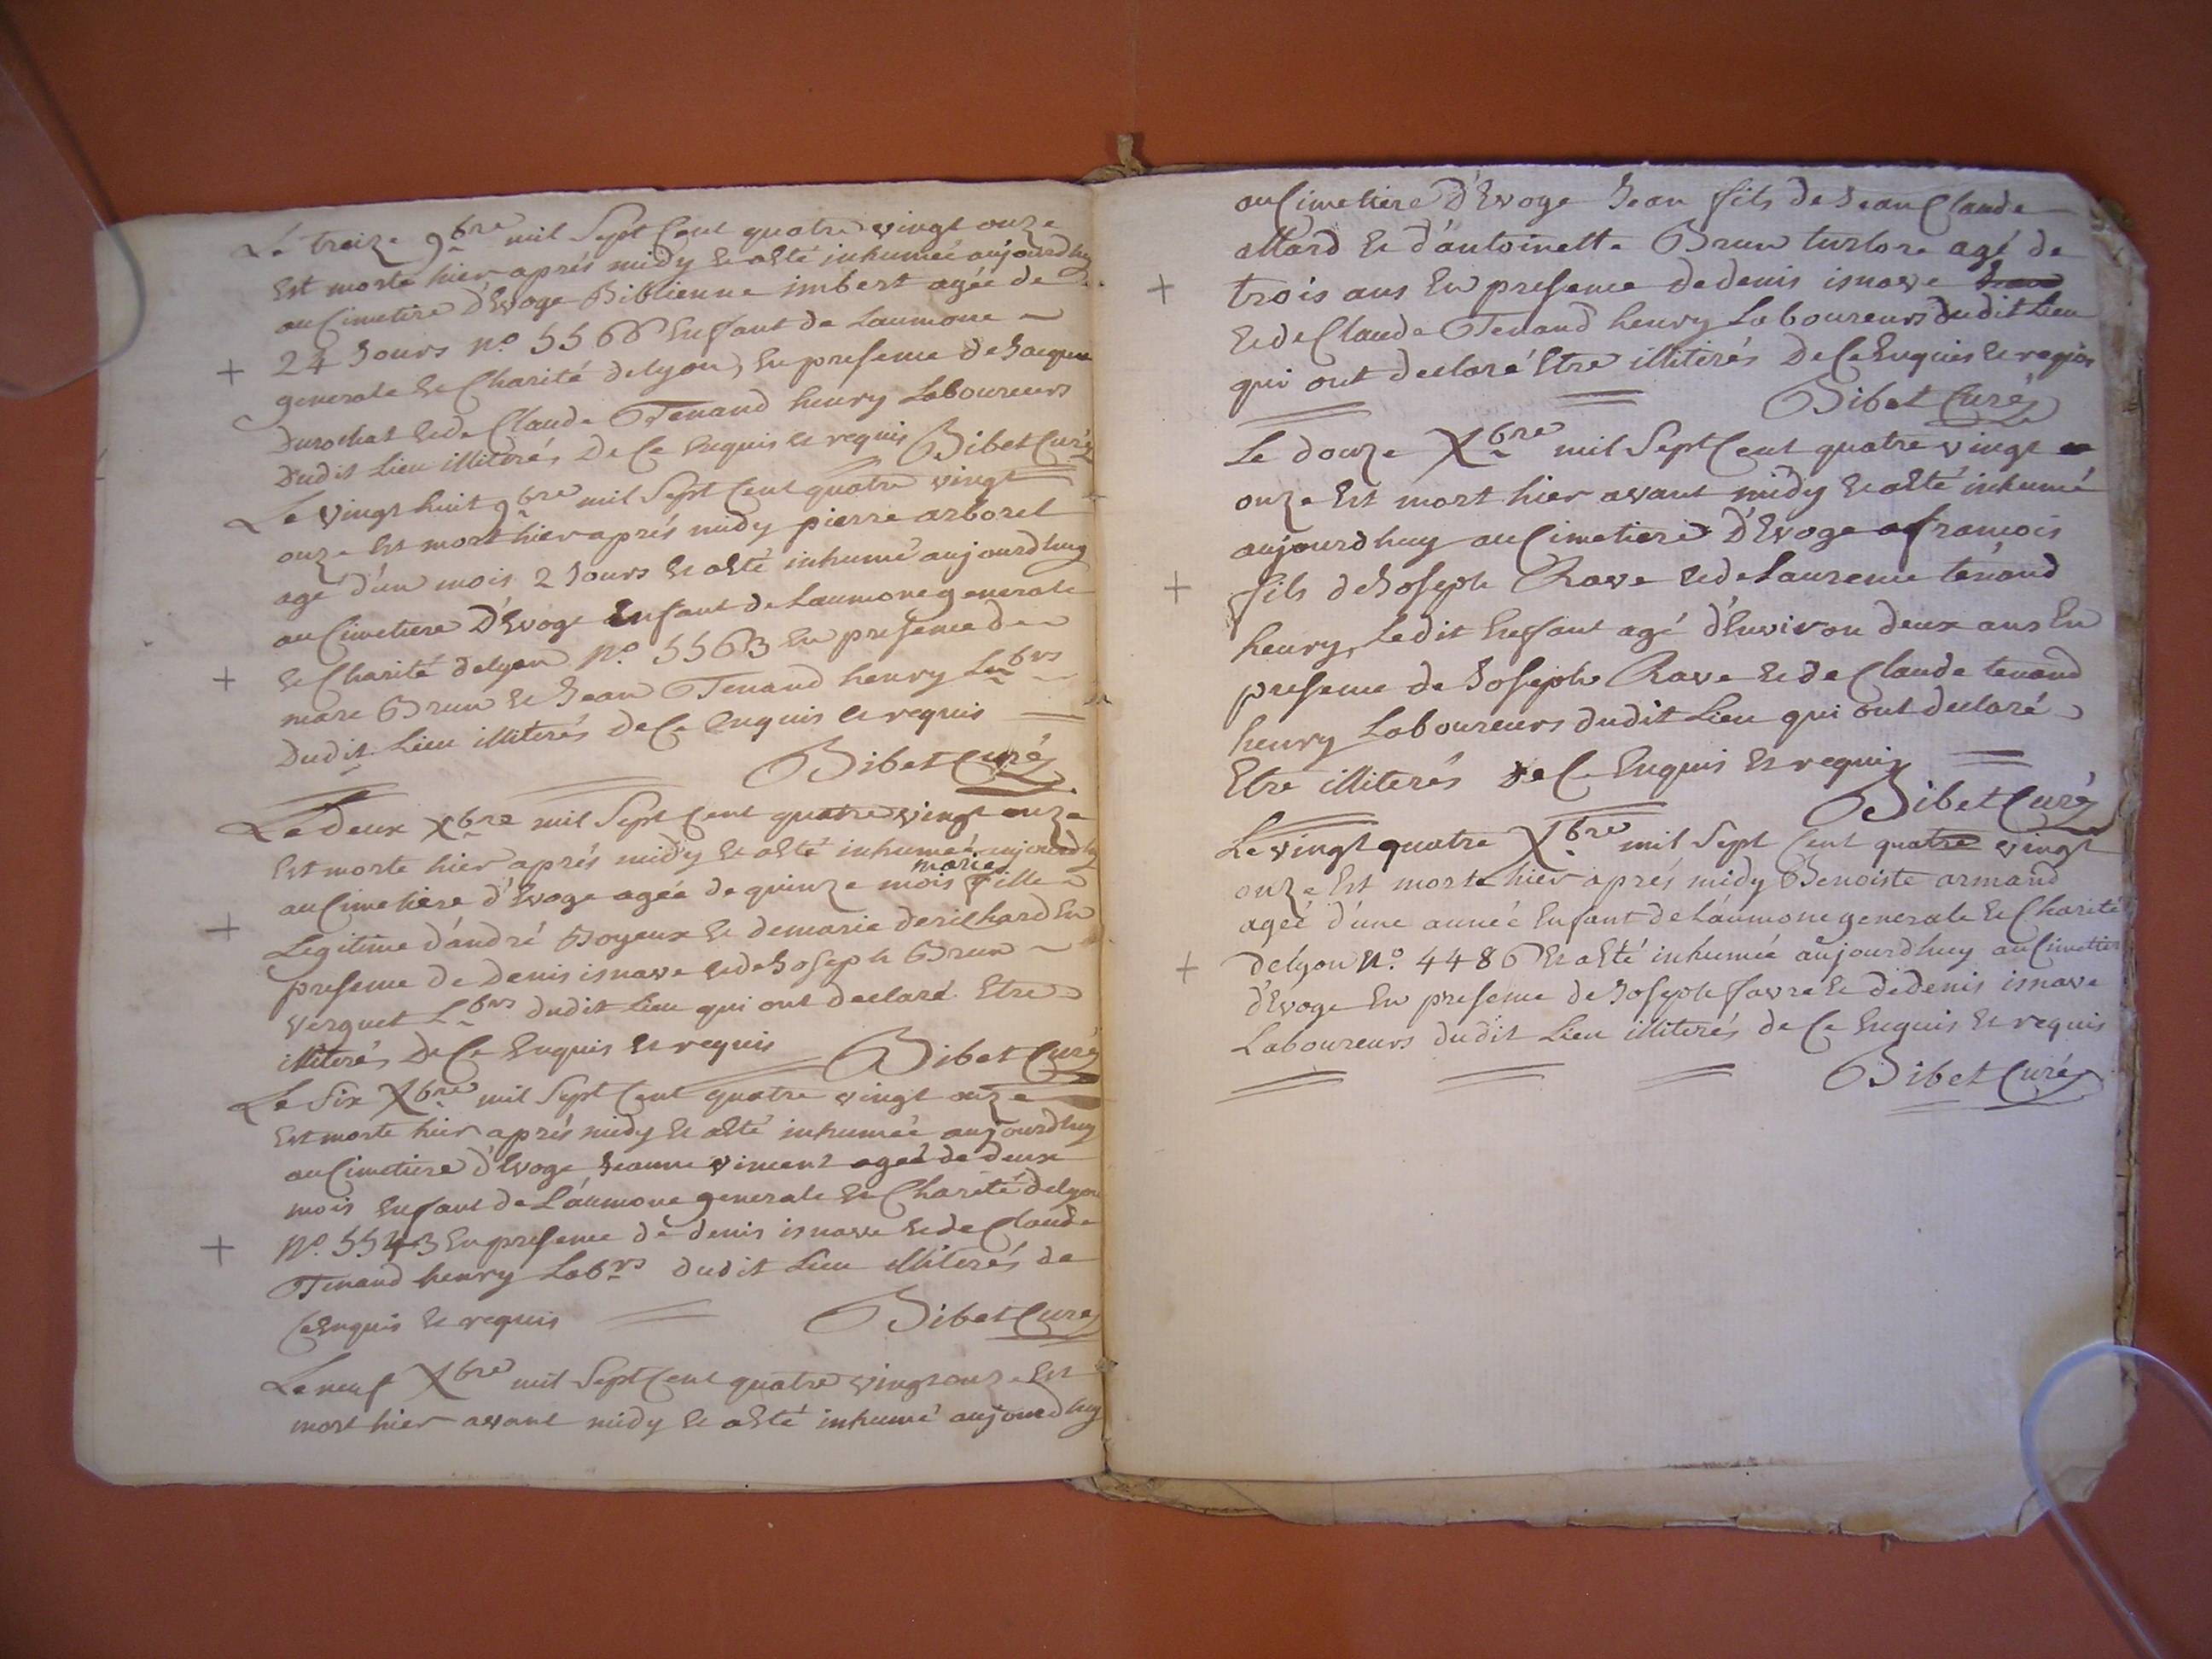 Le treize 9bre mil Sept Cent quatre vingt onze
Est morte hier aprés midy Et a Eté inhumée aujourdhuy
au Cimetire D'Evoge Bibienne imbert agée de
24 Jours N.o 5566 Enfant de Laumone
generale Et Charité de lyon, En presence de Jacques
Durochat Et de Claude Tenand henry Laboureurs
Dudit Lieu illiterés De Ce Enquis Et requis Bibet Curé
Le Vingt huit 9bre mil Sept Cent quatre vingt
onze Est mort hier aprés midy pierre arborel
agé d'un mois 2 Jours Et a Eté inhumé aujourdhuy
au Cimetiere D'Evoge Enfant de Laumone generale
Et Charité de lyon N.o 5563 En presence de
marc Brun Et Jean Tenand henry Lbrs
Dudit Lieu illiterés De Ce Enquis Et requis
Bibet Curé
Le Deux Xbre mil Sept Cent quatre vingt onze
Est morte hier aprés midy Et a Eté inhumée aujourdhuy
marie
au Cimetiere d'Evoge agée de quinze mois fille
Legitime d'andré Joyeux Et de marie derilhard En
presence de Denis isnave Et de Joseph Brun
Verguet Lbrs dudit Lieu qui ont declaré Etre
illiterés De Ce Enquis Et requis Bibet Curé
Le Six Xbre mil Sept Cent quatre vingt onze
Est morte hier aprés midy Et a Eté inhumée aujourdhuy
au Cimetiere d'Evoge Jeanne vincent ageé de deux
mois Enfant de L'aumone generale Et Charité de lyon
N.o 5543 En presence de denis isnave Et de Claude
Tenand henry Labrs dudit Lieu illiterés de
Ce Enquis Et requis Bibet Curé
Le neuf Xbre mil Sept Cent quatre vingt onze Est
mort hier avant midy Et a Eté inhumé aujourdhuy
au Cimetiere D'Evoge Jean fils de Jean Claude
allard Et d'antoinette Brun turlore agé de
trois ans En presence de denis isnave
Et de Claude Tenand henry Laboureurs dudit Lieu
qui ont declaré Etre illiterés De Ce Enquis Et requis
Bibet Curé
Le douze Xbre mil Sept Cent quatre vingt
onze Est mort hier avant midy Et a Eté inhumé
aujourdhuy au Cimetiere D'Evoge francois
fils de Joseph Rave Et de Laurence tenand
henry, Ledit Enfant agé d'Environ deux ans En
presence de Joseph Rave Et de Claude tenand
henry Laboureurs dudit Lieu qui ont declaré
Etre illiterés de Ce Enquis Et requis
Bibet Curé
Le vingt quatre Xbre mil Sept Cent quatre vingt
onze Est morte hier aprés midy Benoiste armand
ageé d'une anneé Enfant de L'aumone generale Et Charité
de lyon N.o 4486 Et a Eté inhumée aujourdhuy au Cimetier
d'Evoge En presence de Joseph favre Et de denis isnave
Laboureurs dudit Lieu illiterés de Ce Enquis Et requis
Bibet Curé